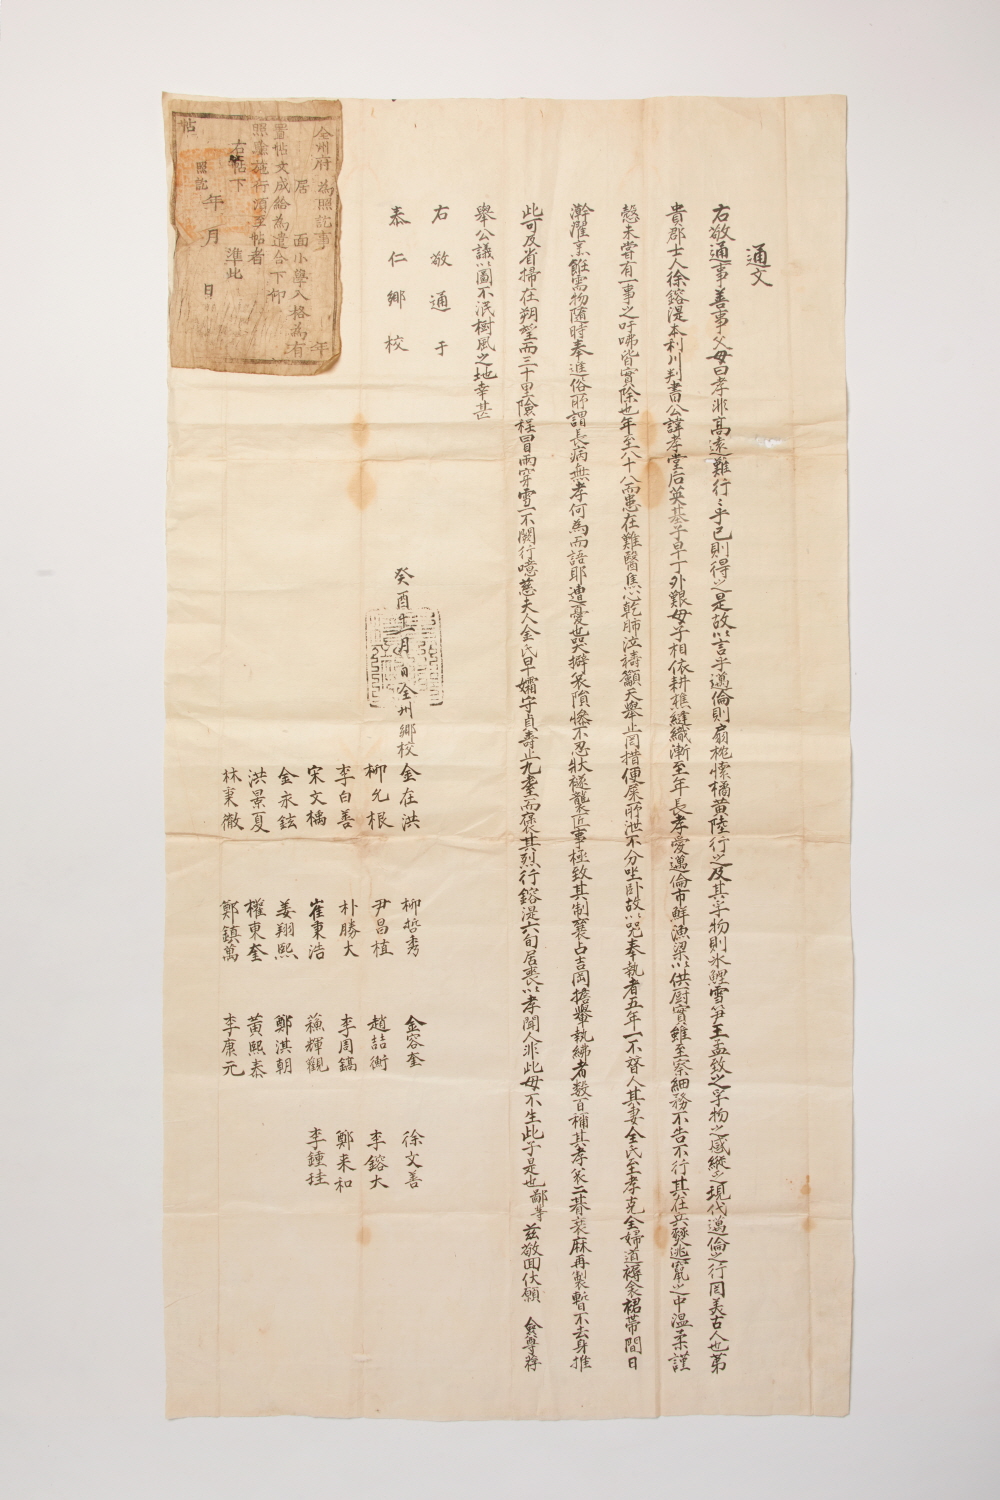 通文
右敬通事善事父母曰孝非高遠難行〻乎己則得之是故以言乎邁倫則扇枕懷橘黃陸行之及其孚物則氷鯉雪笋王孟致之孚物之感縱之現代邁倫之行罔美古人也第
貴郡士人徐鎔湜本利川判書公諱孝堂后英基子早丁外艱母子相依耕樵縫織漸至年長孝愛邁倫市鮮漁梁以供厨實雖至寮細務不告不行其在兵燹逃竄之中溫柔謹
慤未嘗有一事之吁咈皆實除也年至八十八而患在難醫焦心乾肺泣禱籲天舉止罔措便屎所泄不分坐卧故以兕奉執者五年一不督人其妻全氏至孝克全婦道褥衾裙帶間日
澣濯烹飪需物隨時奉進俗所謂長病無孝何為而語耶遭憂也哭擗哀隕慘不忍狀襚襲匠事極致其制襄占吉岡擔轝執紼者數百稱其孝哀二朞衰麻再製暫不去身推
此可反省掃在朔望而三十里險程冒雨穿雪一不闕行噫慈夫人金氏早孀守貞壽止九耋而褒其烈行鎔湜六旬居喪以孝聞人非此母不生此子是也鄙等玆敬回伏願 僉尊將
舉公議以圖不泯樹風之地幸甚
右敬通于
泰仁鄕校
癸酉 月 日全州鄕校
金在洪 柳哲秀 金容奎 徐文善
柳允根 尹昌植 趙喆衡 李鎔大
李白善 朴勝大 李周鎬 鄭來和
宋文橋 崔秉浩 蘓輝觀 李鍾珪
金永鉉 姜翔熙 鄭淇朝
洪景夏 權東奎 黃熙泰
林秉徹 鄭鎭萬 李康元
全州府 為照訖事 年
居 面小學入格為有
置帖文成給為遣合下仰
照驗施行須至帖者
右帖下 準此
照訖 年 月 日
帖